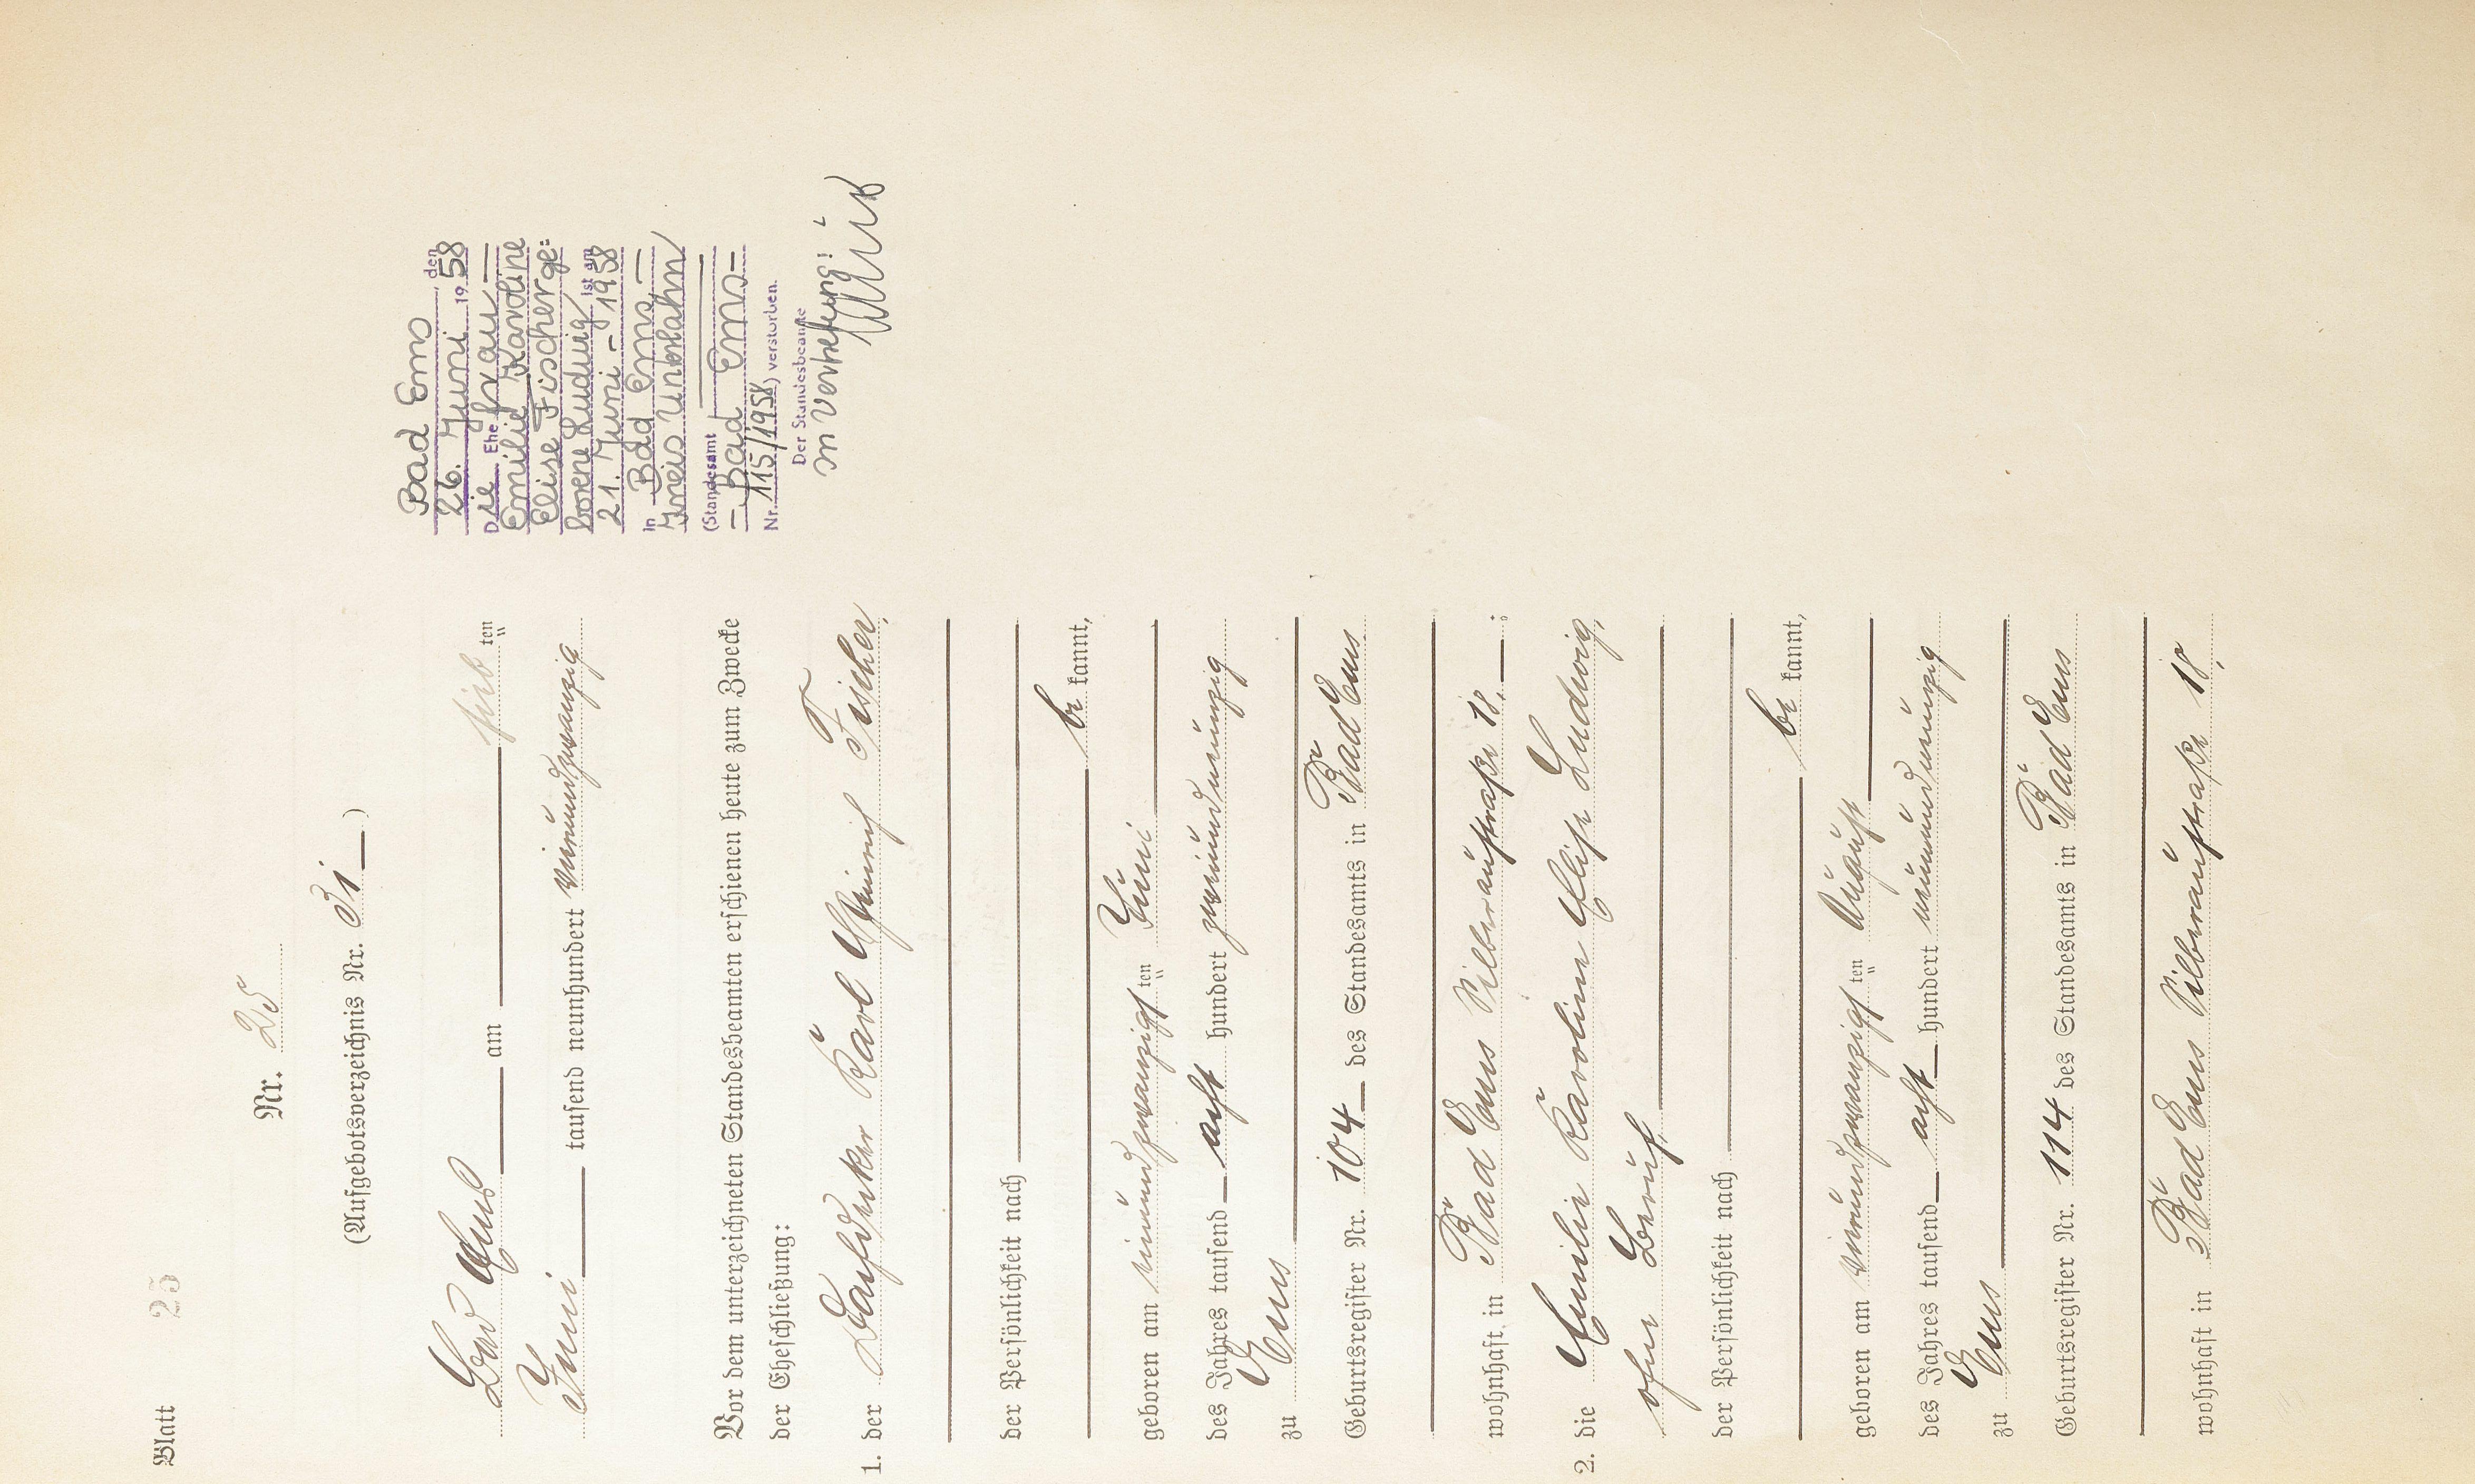 Blatt 25
Nr. 25
(Aufgebotsverzeichnis Nr. 31)
Bad Ems am sieb ten
Juni tausend neunhundert vierundzwanzig
Vor dem unterzeichneten Standesbeamten erschienen heute zum Zwecke
der Eheschließung:
1. der Dachdecker Karl Heinrich Fischer,
der Persönlichkeit nach
be kannt,
geboren am neunundzwanzigst ten Juni
des Jahres tausend acht hundert zweiundneunzig
zu Ems
Geburtsregister Nr. 104 des Standesamts in Bad Ems
wohnhaft in Bad Ems Silberaustraße 18, ;
2. die Emilie Karoline Elise Ludwig,
ohne Beruf,
der Persönlichkeit nach
be kannt,
geboren am vierundzwanzigst ten August
des Jahres tausend acht hundert neunundneunzig
zu Ems
Geburtsregister Nr. 114 des Standesamts in Bad Ems
wohnhaft in Bad Ems Silberaustraße 18,
Bad Ems, den
26. Juni 1958
Die Ehefrau
Emilie Karoline
Elise Fischer ge=
borene Ludwig ist am
21. Juni - 1958
in Bad Ems
Kreis Unterlahn
(Standesamt
- Bad Ems -
Nr. 115/1958) verstorben.
Der Standesbeamte
In Vertretung: